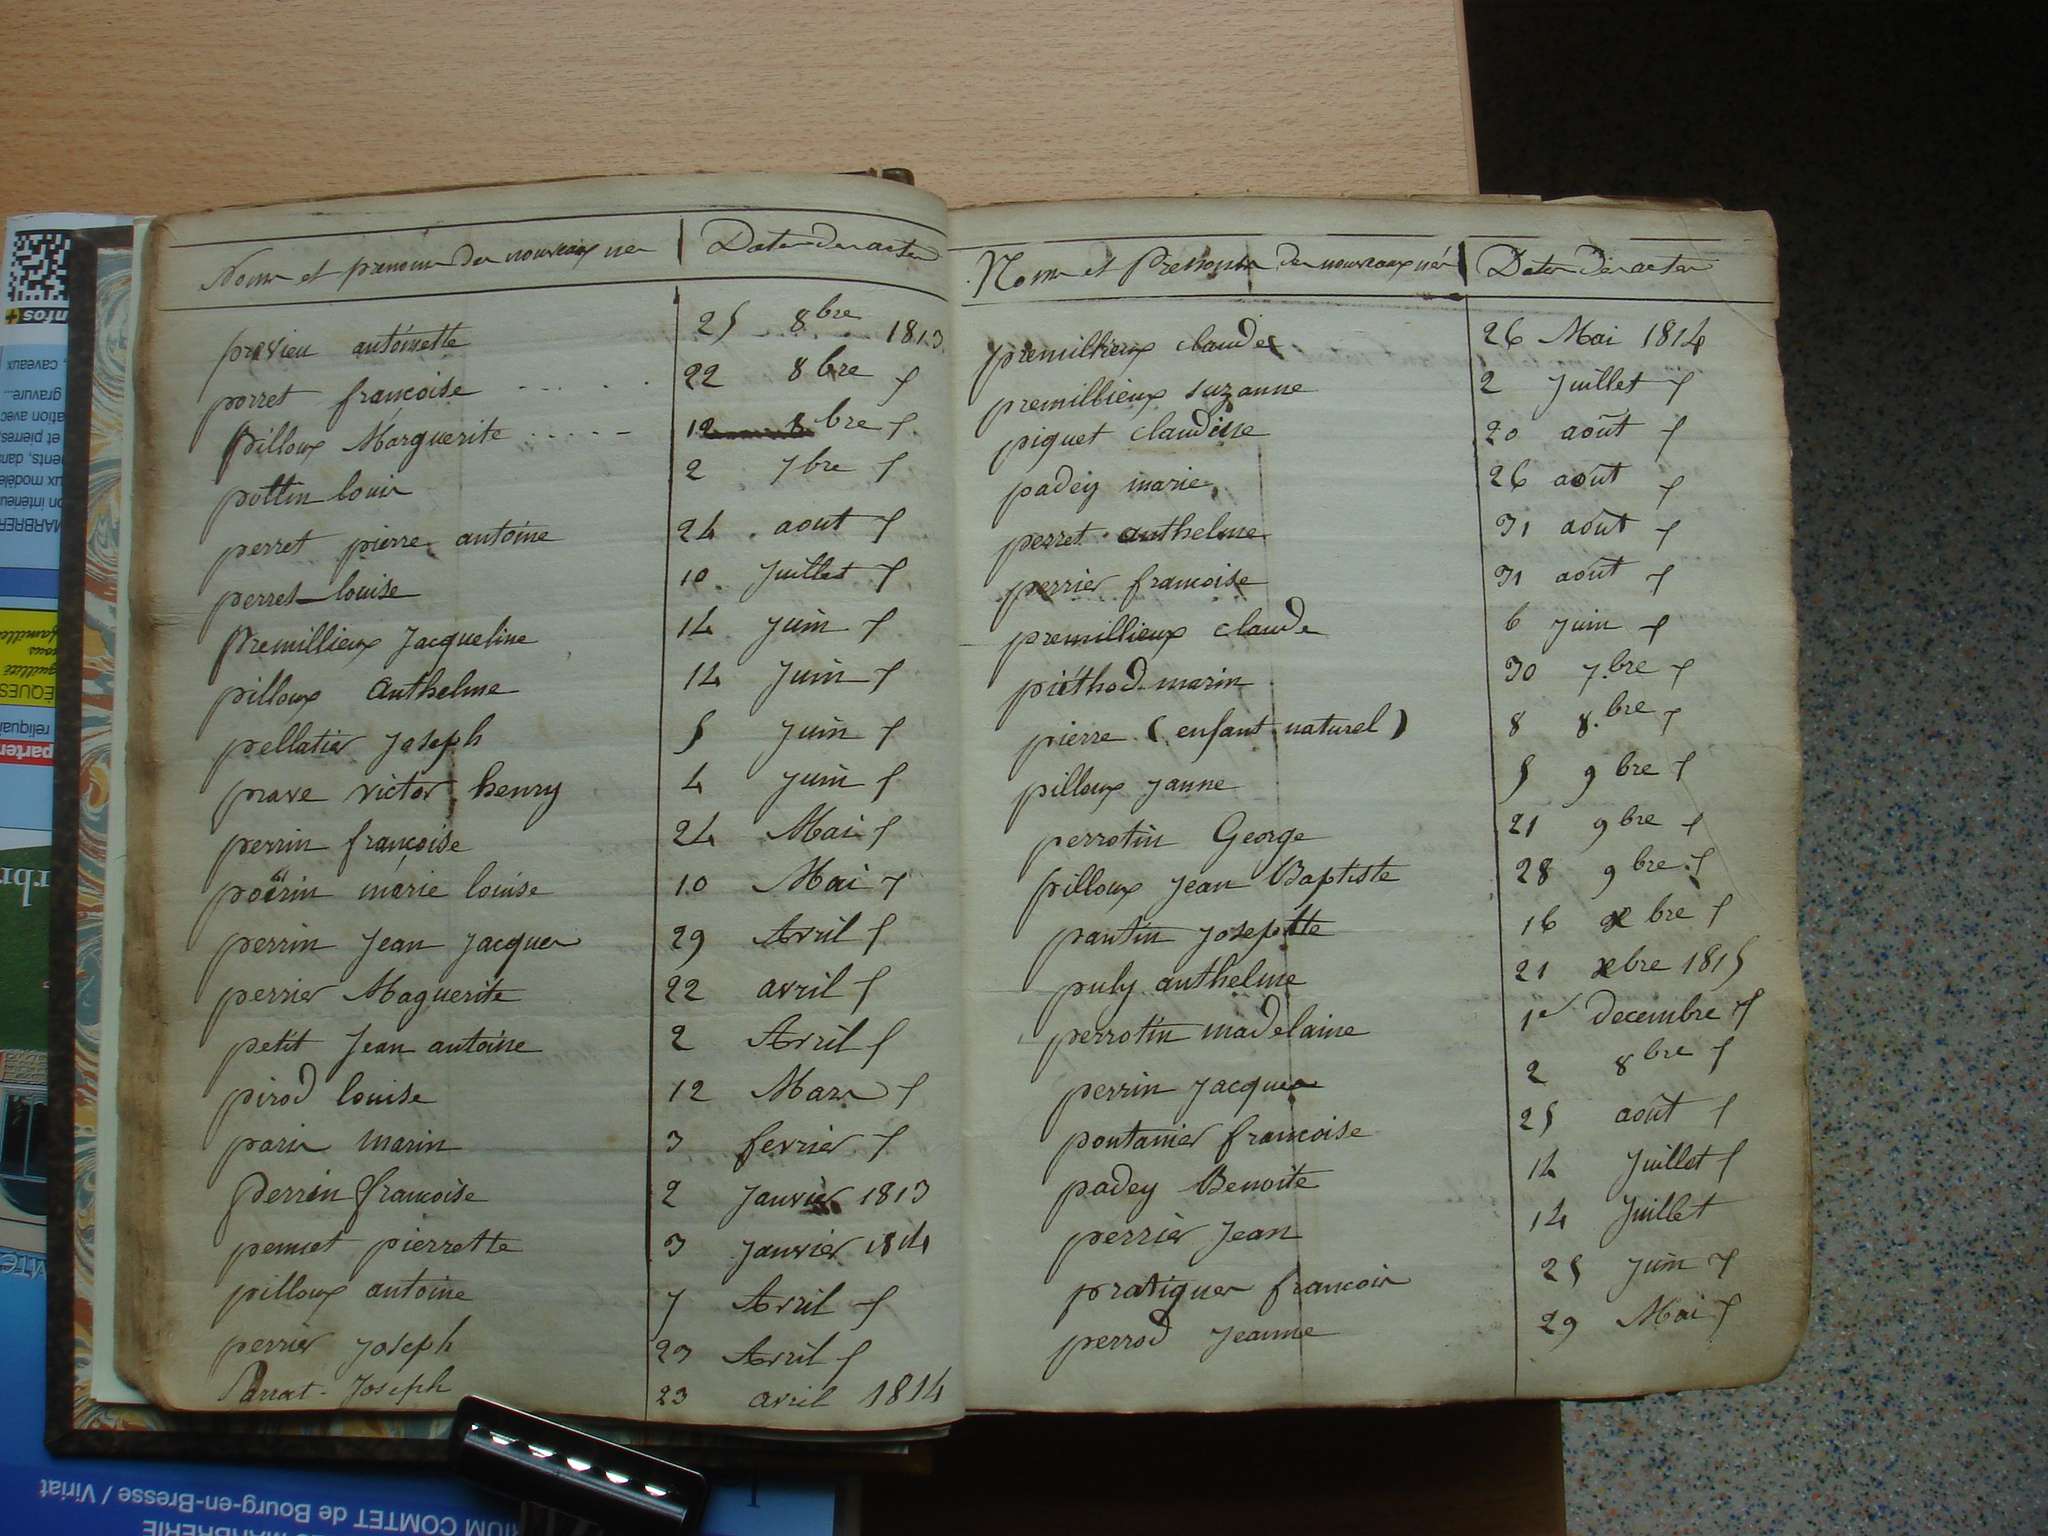 Noms et prenoms des nouveaux nes | Dates des actes
prévieu antoinette 25 8bre 1813
porret francoise 22 8bre f
pilloux Marguerite 12 8bre f
pottin louis 2 7bre f
perret pierre antoine 24 aout f
perret louise 10 Juillet f
premillieux Jacqueline 14 Juin f
pilloux Anthelme 14 Juin f
pellatier Joseph 5 Juin f
prave victor henry 4 Juin f
perrin françoise 24 Mai f
marie louise 10 Mai f
perrin Jean Jacques 29 Avril f
perrier Maguerite 22 avril f
petit Jean antoine 2 Avril f
pirod louise 12 Mars f
paris marin 3 fevrier f
perrin francoise 2 Janvier 1813
pierrette 3 Janvier 1814
pilloux antoine 7 Avril f
perrier Joseph 23 Avril f
Joseph 23 avril 1814
Noms et Prenoms des nouveaux nés | Dates des actes
premillieux claude 26 Mai 1814
premillieux suzanne 2 Juillet f
piquet claudine 20 août f
padey marie 26 août f
perret anthelme 31 août f
perrier francoise 31 août f
premillieux claude 6 Juin f
piéthod marin 30 7bre f
pierre (enfant naturel) 8 8bre f
pilloux Janne 5 9bre f
perrotin George 21 9bre f
pilloux Jean Baptiste 28 9bre f
pantin Josephte 16 xbre f
puly anthelme 21 xbre 1815
perrotin madelaine 1er decembre f
perrin Jacques 2 8bre f
pontanier francoise 25 août f
padey Benoite 14 Juillet f
perrier Jean 14 Juillet
pratiques francois 25 Juin f
perrod Jeanne 29 Mai f
infos +
caveaux
gravure...
MARBRER
reliquai
parten
COMTET de Bourg-en-Bresse / Viriat